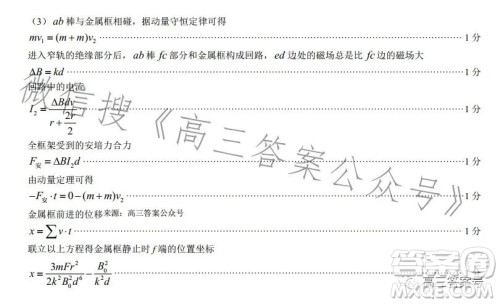 （3）ab棒与金属框相碰，据动量守恒定律可得
mv₁ = (m+m)v₂ ························ 1分
进入窄轨的绝缘部分后，ab棒fc部分和金属框构成回路，ed边处的磁场总是比fc边的磁场大
ΔB = kd ························ 1分
回路中的电流
I₂ = ΔBdv / (r + 2r/2) ························ 1分
全框架受到的安培力合力
F安 = ΔBI₂d ························ 1分
由动量定理可得
−F安·t = 0−(m+m)v₂ ························ 1分
金属框前进的位移来源：高三答案公众号
x = ∑v·t ························ 1分
联立以上方程得金属框静止时f端的位置坐标
x = 3mFr² / 2k²B₀²d⁶ − B₀² / k²d
微信搜《高三答案公众号》
高三答案号